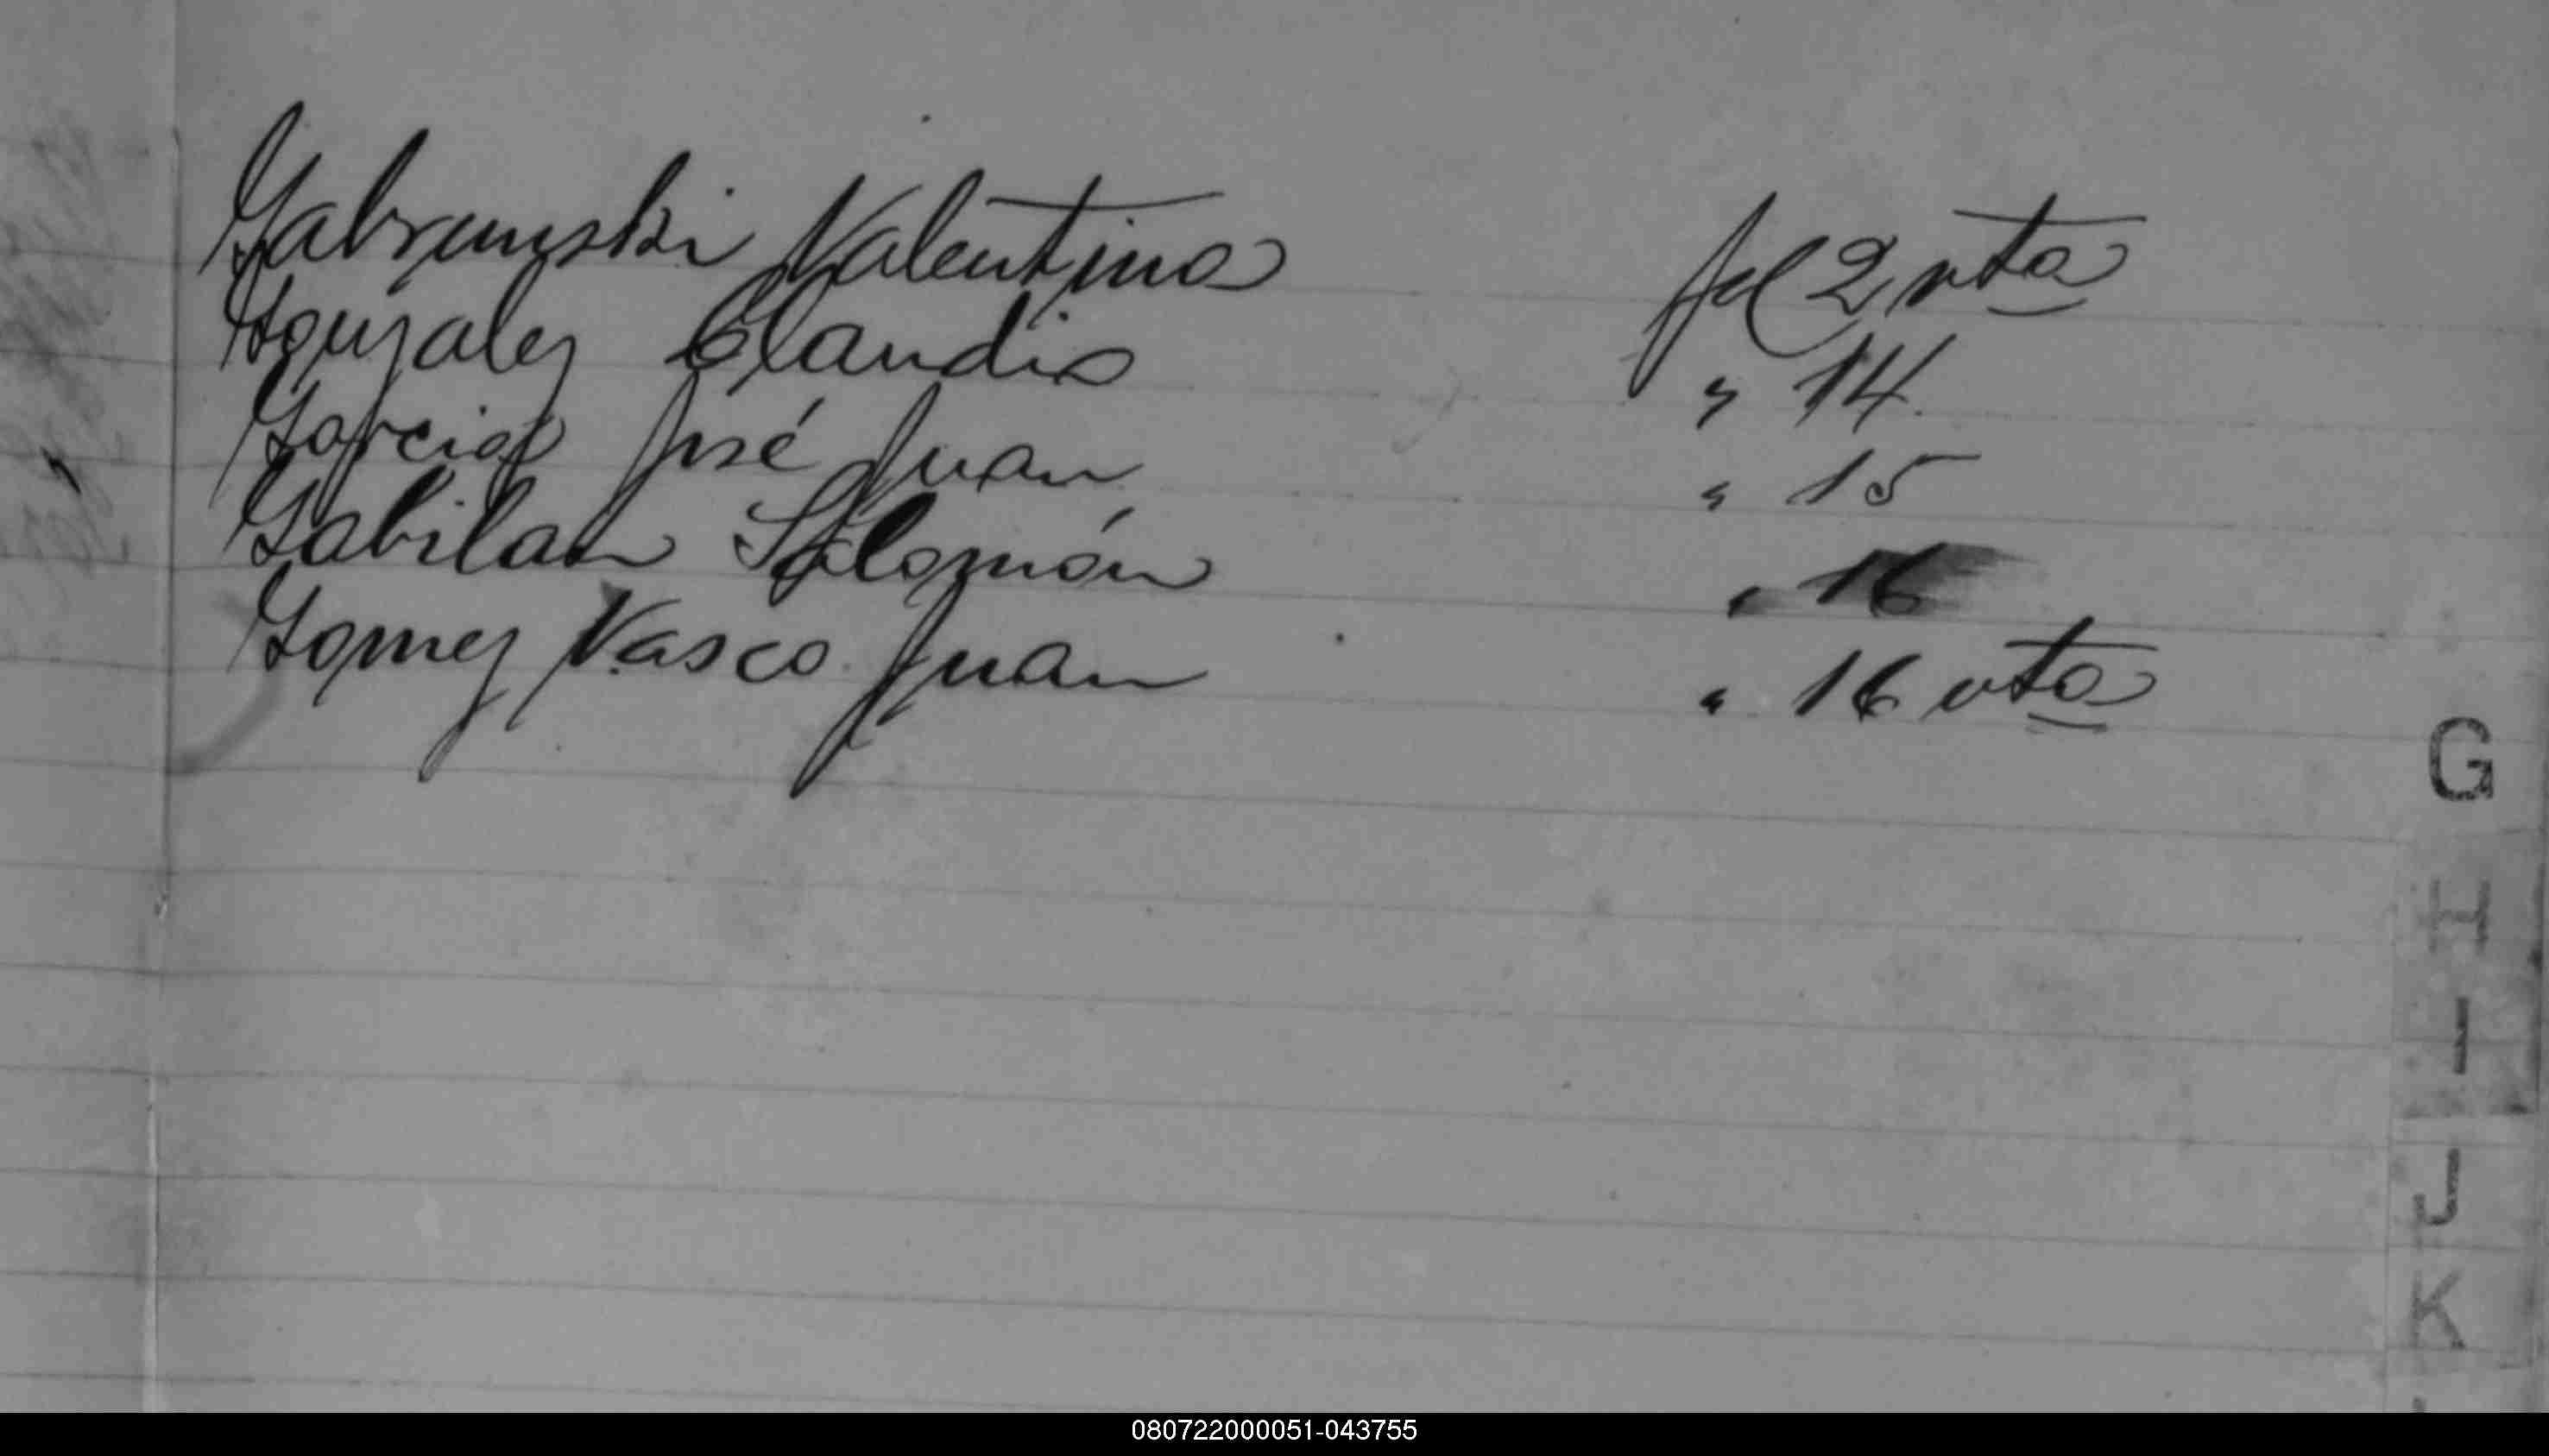 Gabrunski Valentina fol 2 vta
Gonzalez Claudio " 14.
Garcia José Juan " 15
Gabilan Salomón " 16
Gomez Vasco Juan " 16 vta
G
H
I
J
K
080722000051-043755